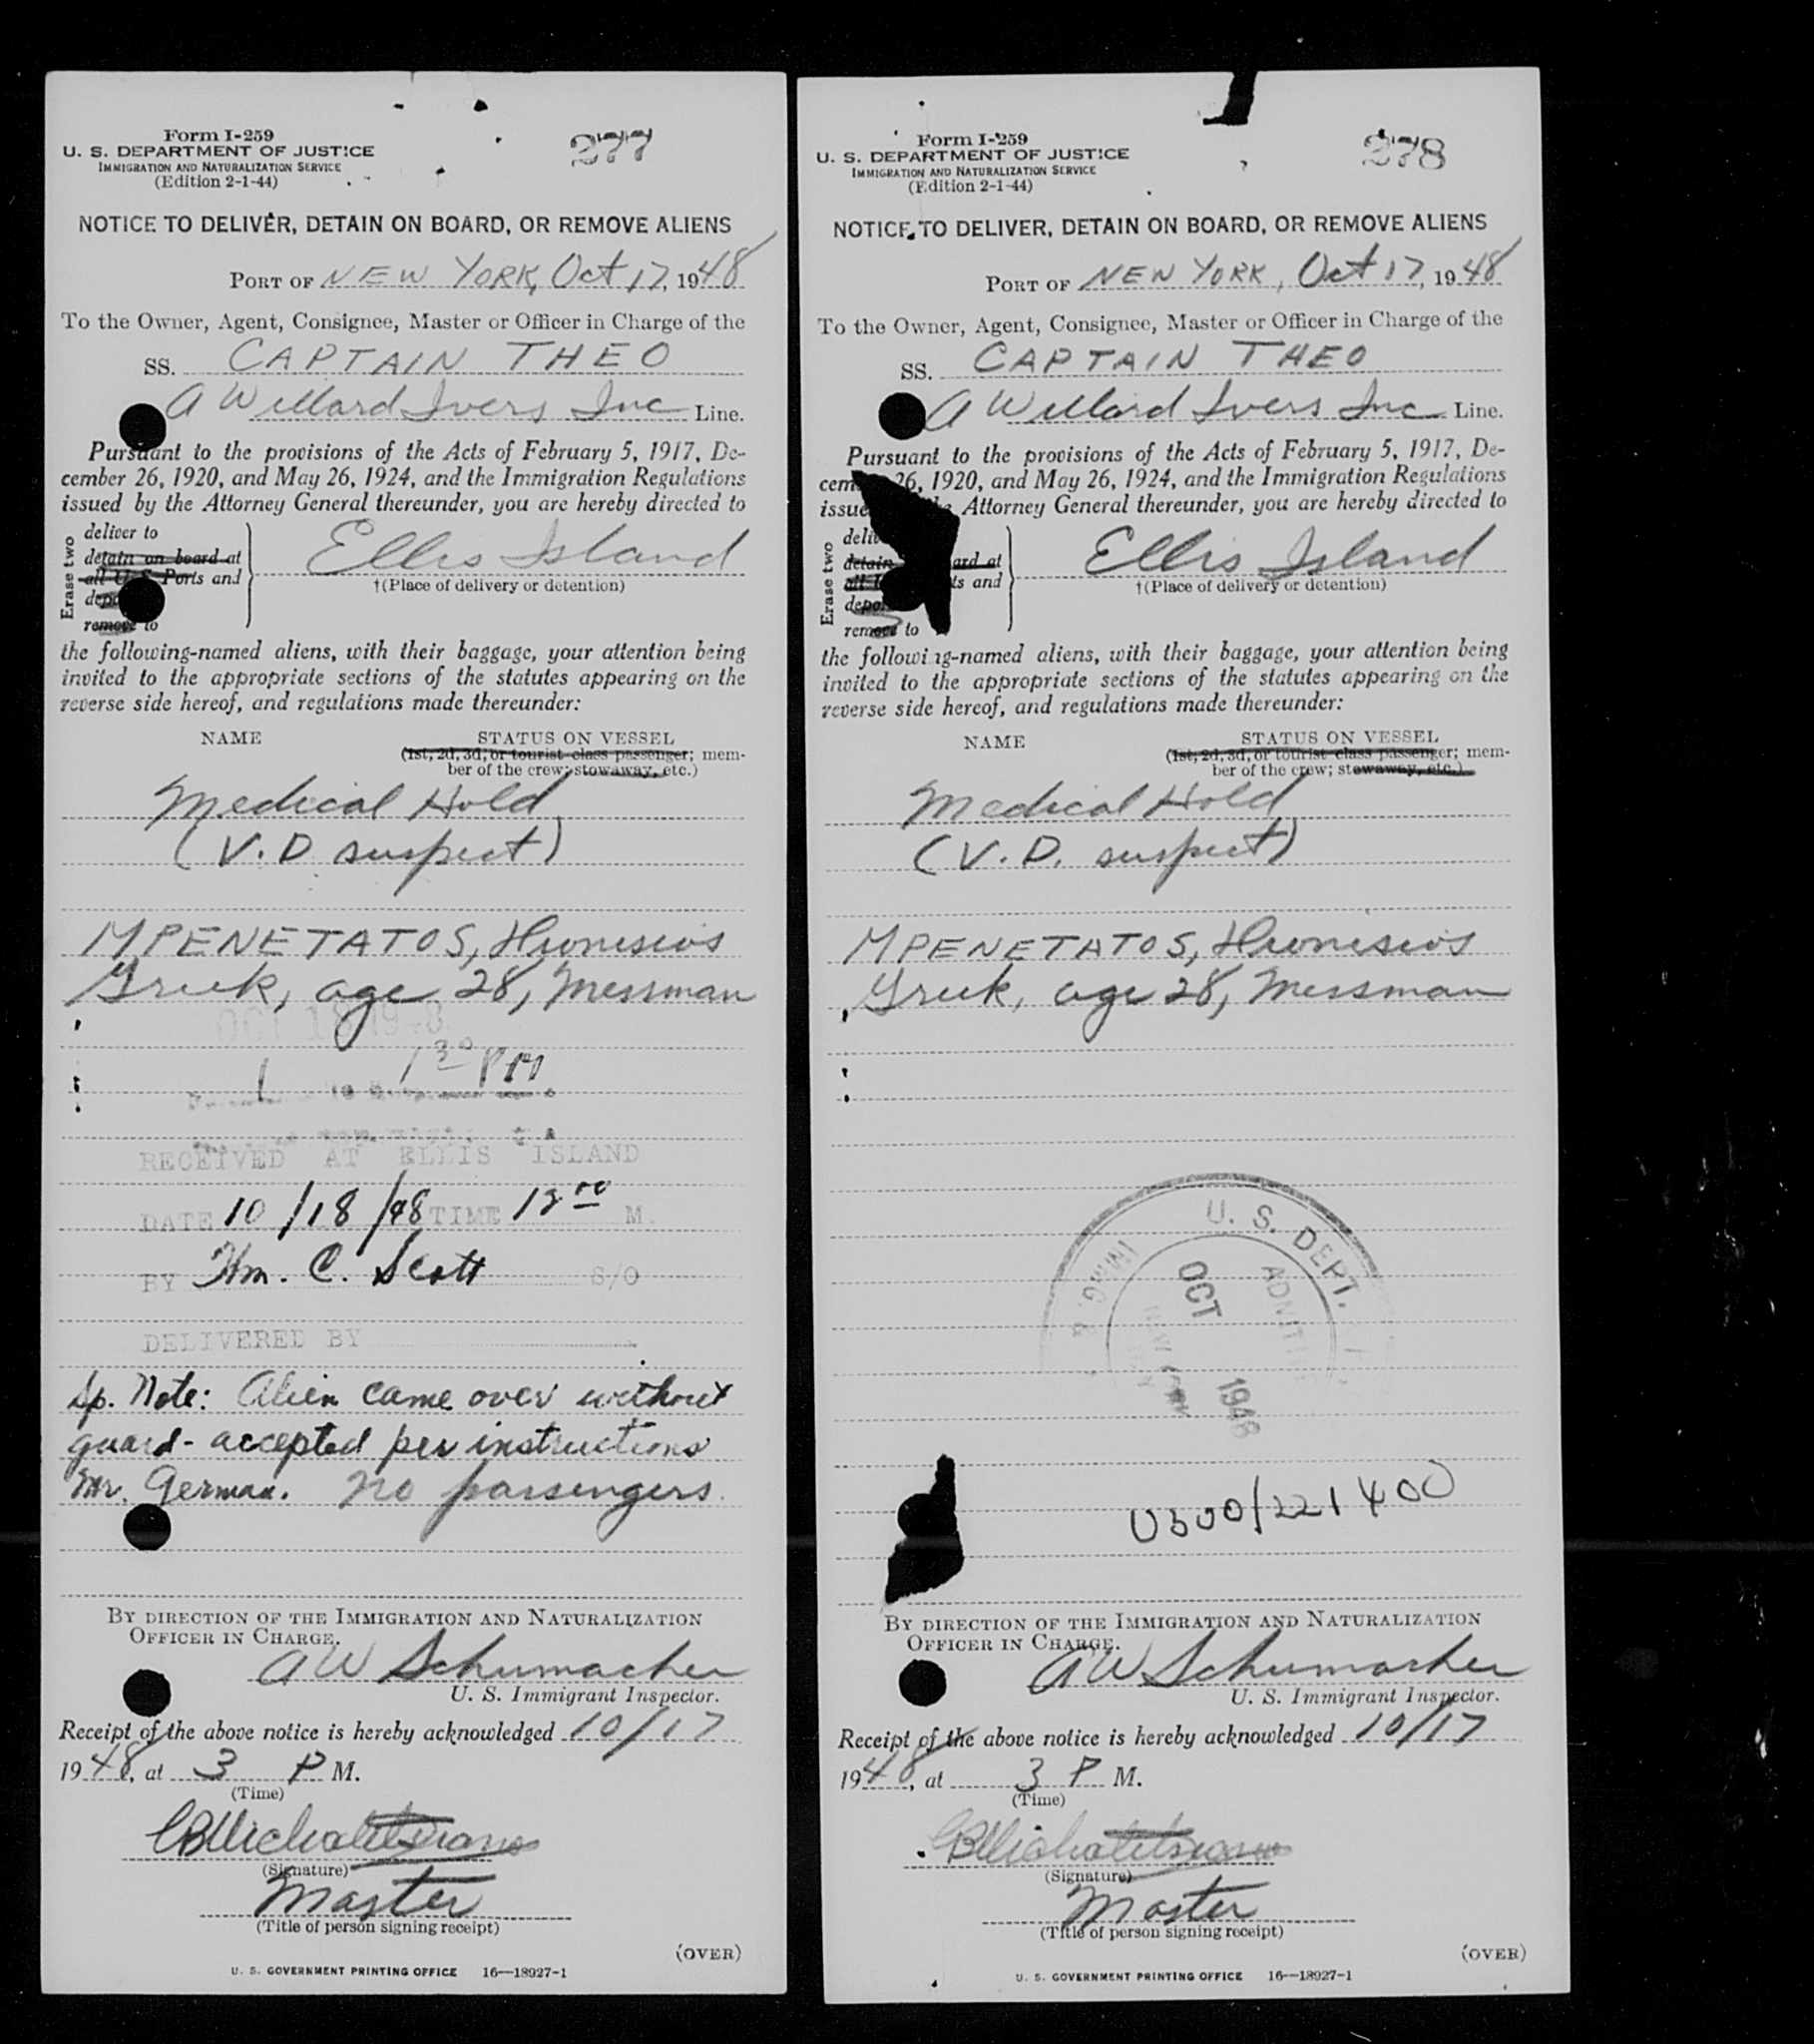 Form I-259
U. S. DEPARTMENT OF JUSTICE
IMMIGRATION AND NATURALIZATION SERVICE
(Edition 2-1-44)
277
NOTICE TO DELIVER, DETAIN ON BOARD, OR REMOVE ALIENS
PORT OF NEW YORK, Oct 17, 1948
To the Owner, Agent, Consignee, Master or Officer in Charge of the
SS. CAPTAIN THEO
A Willard Ivers Inc Line.
Pursuant to the provisions of the Acts of February 5, 1917, De-
cember 26, 1920, and May 26, 1924, and the Immigration Regulations
issued by the Attorney General thereunder, you are hereby directed to
Erase two
deliver to
detain on board at
all U. S. Ports and
remove to
Ellis Island
†(Place of delivery or detention)
the following-named aliens, with their baggage, your attention being
invited to the appropriate sections of the statutes appearing on the
reverse side hereof, and regulations made thereunder:
NAME STATUS ON VESSEL
(1st, 2d, 3d, or tourist class passenger; mem-
ber of the crew; stowaway, etc.)
Medical Hold
(V.D. suspect)
MPENETATOS, Dionisios
Greek, age 28, Messman
OCT 18 1948
1 1 30 PM
RECEIVED AT ELLIS ISLAND
DATE 10/18/48 TIME 12 00 M.
BY Wm. C. Scott S/O
DELIVERED BY
Sp. Note: Alien came over without
guard - accepted per instructions
Mr. German. No passengers.
BY DIRECTION OF THE IMMIGRATION AND NATURALIZATION
OFFICER IN CHARGE.
A W Schumacher
U. S. Immigrant Inspector.
Receipt of the above notice is hereby acknowledged 10/17
1948, at 3 P M.
(Time)
(Signature)
Master
(Title of person signing receipt)
(OVER)
U. S. GOVERNMENT PRINTING OFFICE 16—18927-1
Form I-259
U. S. DEPARTMENT OF JUSTICE
IMMIGRATION AND NATURALIZATION SERVICE
(Edition 2-1-44)
278
NOTICE TO DELIVER, DETAIN ON BOARD, OR REMOVE ALIENS
PORT OF NEW YORK, Oct 17, 1948
To the Owner, Agent, Consignee, Master or Officer in Charge of the
SS. CAPTAIN THEO
A Willard Ivers Inc Line.
Pursuant to the provisions of the Acts of February 5, 1917, De-
26, 1920, and May 26, 1924, and the Immigration Regulations
Attorney General thereunder, you are hereby directed to
Erase two
remove to
Ellis Island
†(Place of delivery or detention)
the following-named aliens, with their baggage, your attention being
invited to the appropriate sections of the statutes appearing on the
reverse side hereof, and regulations made thereunder:
NAME STATUS ON VESSEL
(1st, 2d, 3d, or tourist class passenger; mem-
ber of the crew; stowaway, etc.)
Medical Hold
(V.D. suspect)
MPENETATOS, Dionisios
Greek, age 28, Messman
U. S. DEPT.
IMMIG. &
OCT
1948
0300/221400
BY DIRECTION OF THE IMMIGRATION AND NATURALIZATION
OFFICER IN CHARGE.
A W Schumacher
U. S. Immigrant Inspector.
Receipt of the above notice is hereby acknowledged 10/17
1948, at 3 P M.
(Time)
(Signature)
Master
(Title of person signing receipt)
(OVER)
U. S. GOVERNMENT PRINTING OFFICE 16—18927-1